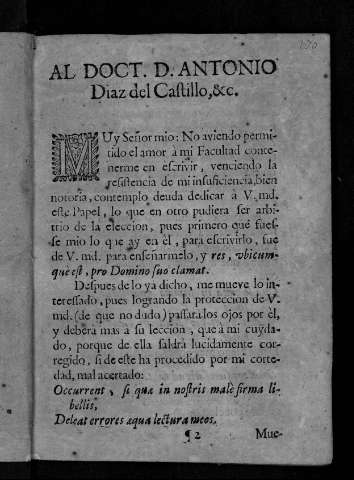 AL DOCT. D. ANTONIO
Diaz del Castillo, &c.
MUy Señor mio: No aviendo permi-
tido el amor à mi Facultad conte-
nerme en escrivir, venciendo la
resistencia de mi insuficiencia, bien
notoria, contemplo deuda dedicar à V. md.
este Papel, lo que en otro pudiera ser arbi-
trio de la eleccion, pues primero que fues-
se mio lo que ay en èl, para escrivirlo, fue
de V. md. para enseñarmelo, y res, vbicum-
que est, pro Domino suo clamat.
Despues de lo ya dicho, me mueve lo in-
teressado, pues logrando la proteccion de V.
md. (de que no dudo) passarà los ojos por èl,
y deberà mas à su leccion, que à mi cuyda-
do, porque de ella saldrà lucidamente cor-
regido, si de este ha procedido por mi corte-
dad, mal acertado:
Occurrent, si quæ in nostris malè firma li-
bellis,
Deleat errores æqua lectura meos.
¶2 Mue-